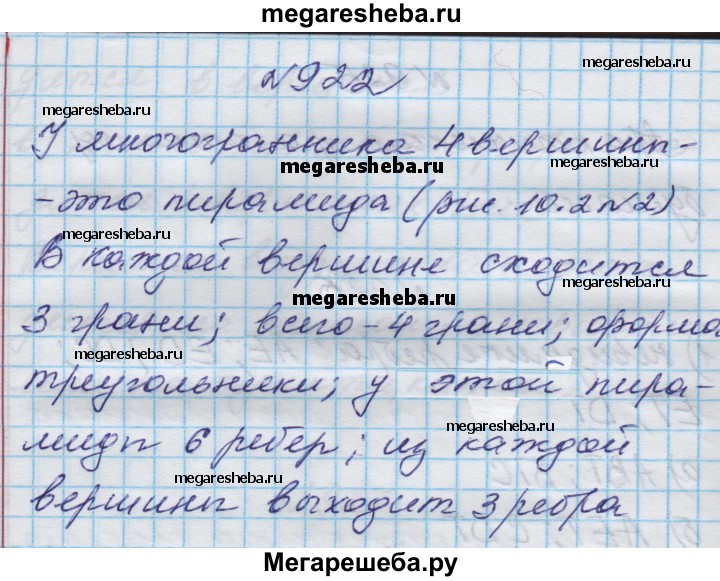 megaresheba.ru
№922
megaresheba.ru
megaresheba.ru
У многогранника 4 вершины-
megaresheba.ru
megaresheba.ru
-это пирамида (рис. 10.2 №2)
megaresheba.ru
В каждой вершине сходится
megaresheba.ru
megaresheba.ru
3 грани; всего - 4 грани; форма
megaresheba.ru
треугольники; у этой пира-
megaresheba.ru
миды 6 ребер; из каждой
megaresheba.ru
megaresheba.ru
вершины выходит 3 ребра
Мегарешеба.ру